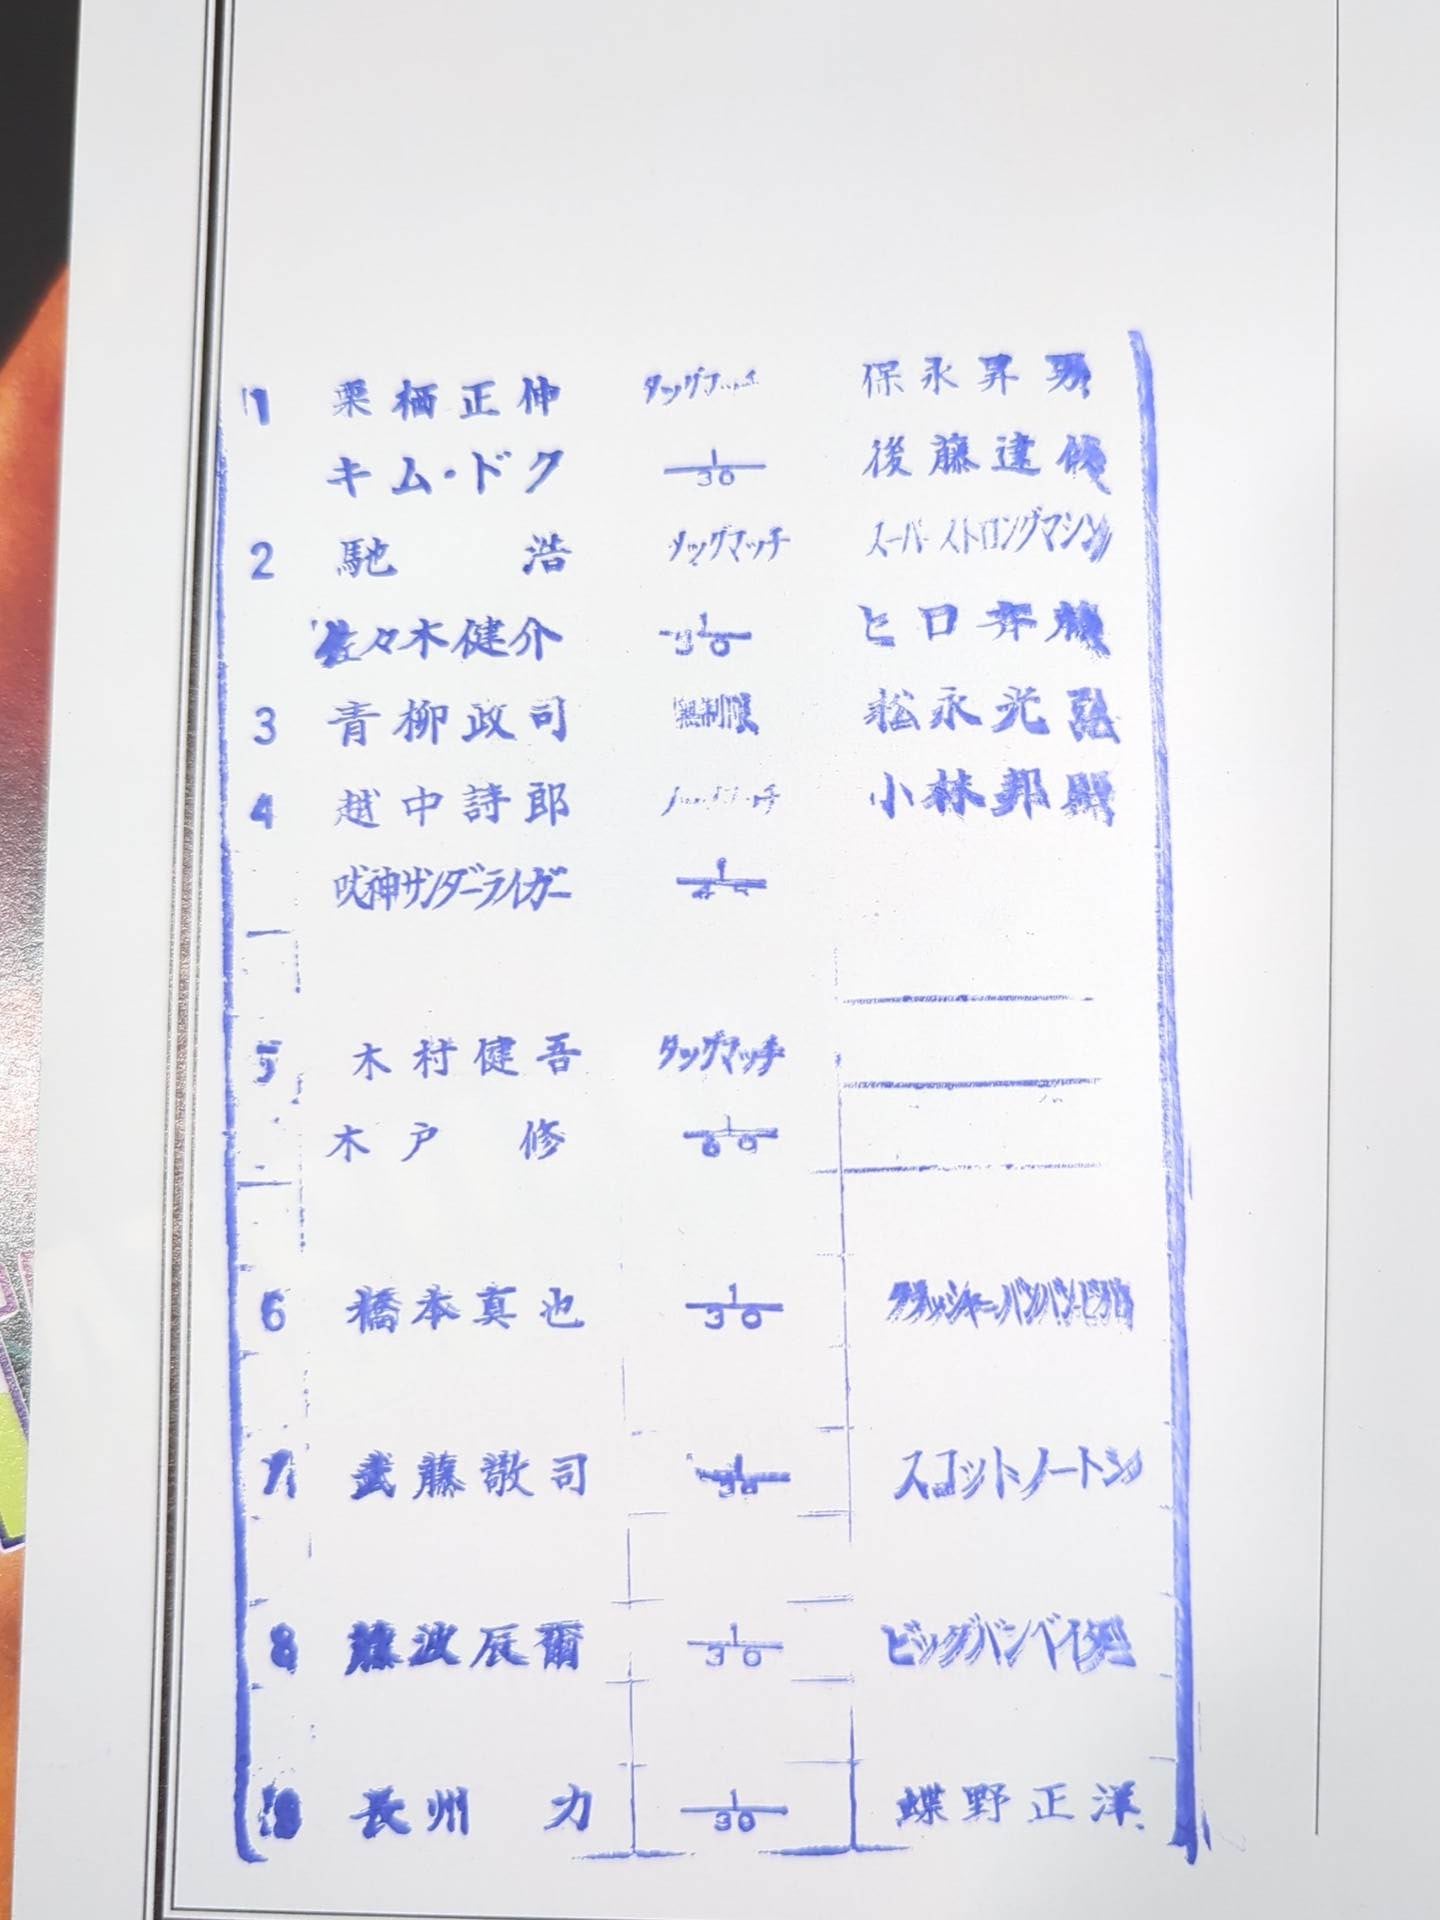 1 栗栖正伸 タッグマッチ 保永昇男
キム・ドク 1/30 後藤達俊
2 馳 浩 タッグマッチ スーパーストロングマシン
佐々木健介 1/30 ヒロ斉藤
3 青柳政司 無制限 松永光弘
4 越中詩郎 小林邦昭
獣神サンダーライガー 1/45
5 木村健吾 タッグマッチ
木戸 修 1/60
6 橋本真也 1/30 クラッシャー・バンバン・ビガロ
7 武藤敬司 1/30 スコットノートン
8 藤波辰爾 1/30 ビッグバンベイダー
長州 力 1/30 蝶野正洋